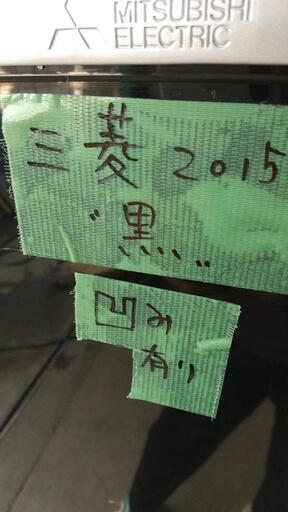 MITSUBISHI
ELECTRIC
三菱 2015
"黒"
凹み
有り